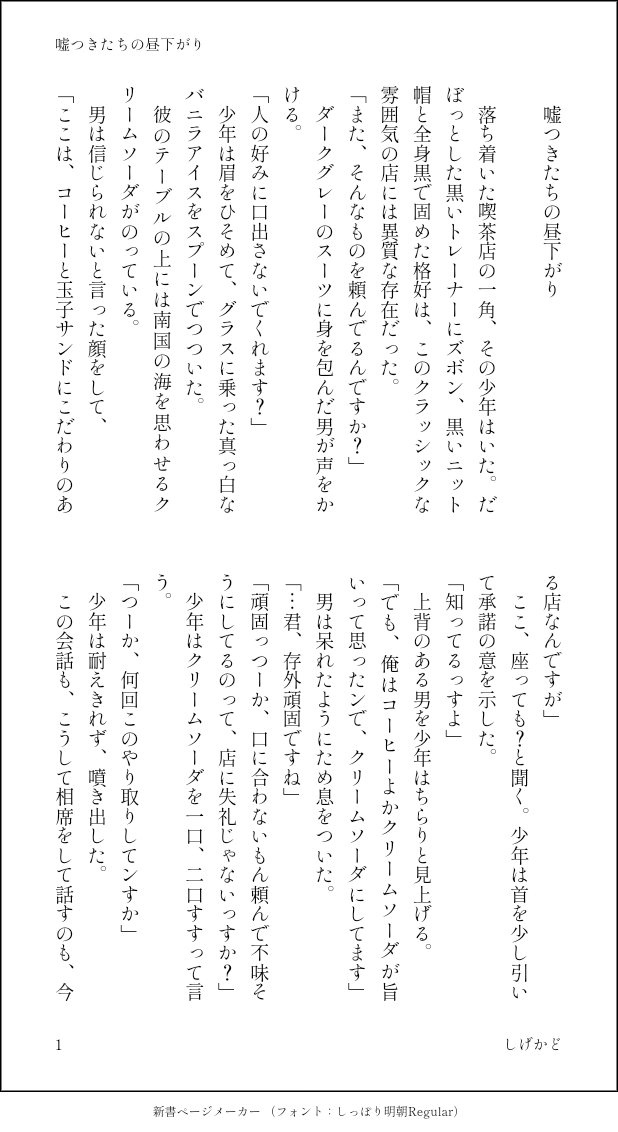 嘘つきたちの昼下がり
嘘つきたちの昼下がり
落ち着いた喫茶店の一角、その少年はいた。だ
ぼっとした黒いトレーナーにズボン、黒いニット
帽と全身黒で固めた格好は、このクラッシックな
雰囲気の店には異質な存在だった。
「また、そんなものを頼んでるんですか？」
ダークグレーのスーツに身を包んだ男が声をか
ける。
「人の好みに口出さないでくれます？」
少年は眉をひそめて、グラスに乗った真っ白な
バニラアイスをスプーンでつついた。
彼のテーブルの上には南国の海を思わせるク
リームソーダがのっている。
男は信じられないと言った顔をして、
「ここは、コーヒーと玉子サンドにこだわりのあ
る店なんですが」
ここ、座っても？と聞く。少年は首を少し引い
て承諾の意を示した。
「知ってるっすよ」
上背のある男を少年はちらりと見上げる。
「でも、俺はコーヒーよかクリームソーダが旨
いって思ったンで、クリームソーダにしてます」
男は呆れたようにため息をついた。
「…君、存外頑固ですね」
「頑固っつーか、口に合わないもん頼んで不味そ
うにしてるのって、店に失礼じゃないっすか？」
少年はクリームソーダを一口、二口すすって言
う。
「つーか、何回このやり取りしてンすか」
少年は耐えきれず、噴き出した。
この会話も、こうして相席をして話すのも、今
1
しげかど
新書ページメーカー （フォント：しっぽり明朝Regular）